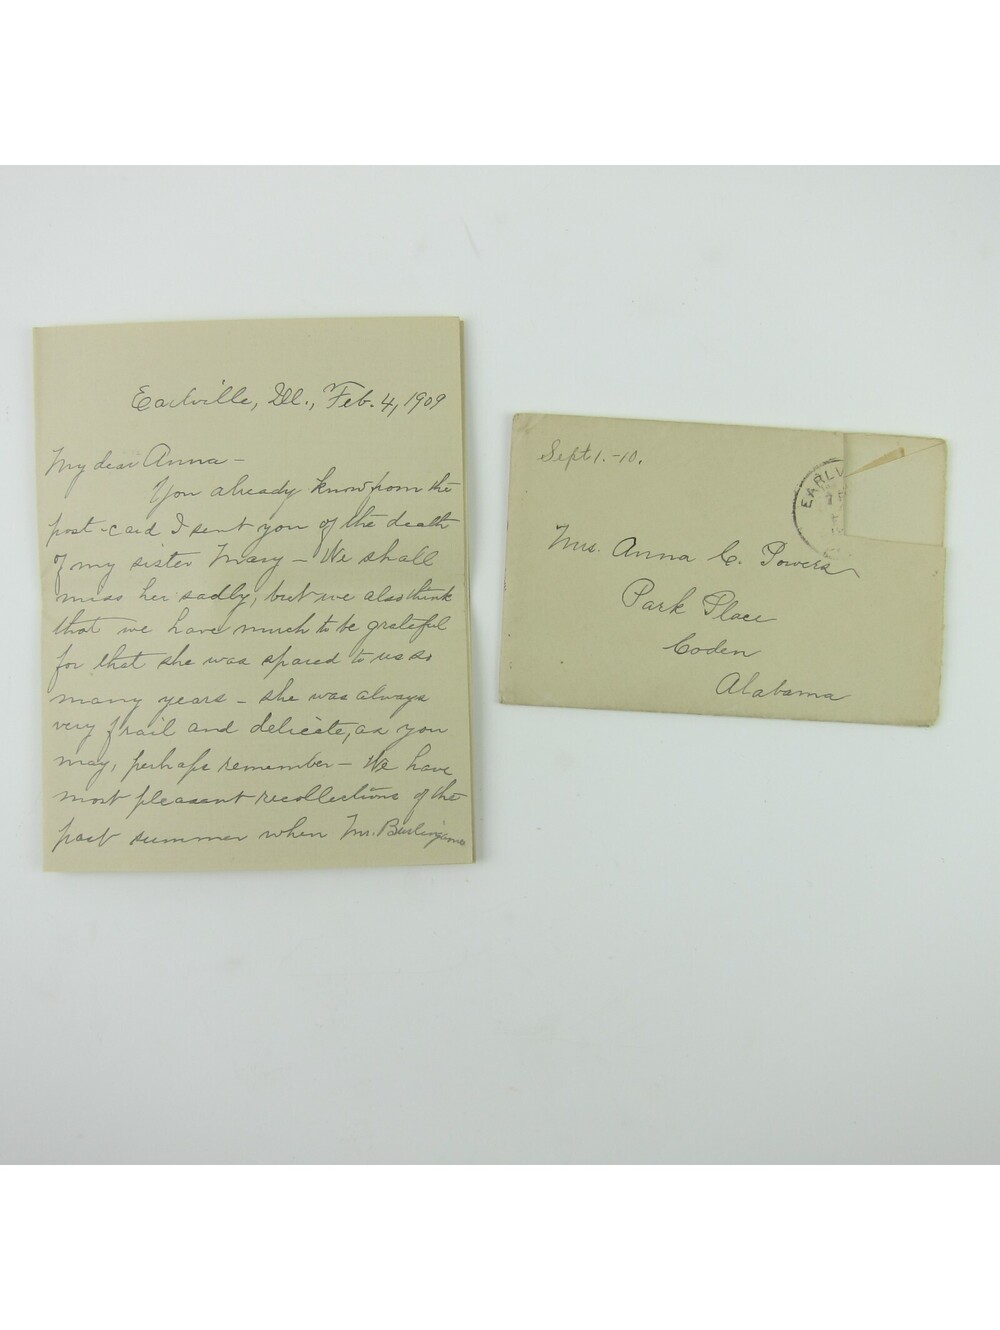 Earlville, Ill., Feb. 4, 1909
My dear Anna -
You already know from the
post-card I sent you of the death
of my sister Mary - We shall
miss her sadly, but we also think
that we have much to be grateful
for that she was spared to us so
many years - she was always
very frail and delicate, as you
may, perhaps remember - We have
most pleasant recollections of the
past summer when Mr. Burlingame
Sept 1.-10.
EARLV
Mrs. Anna C. Powers
Park Place
Coden
Alabama